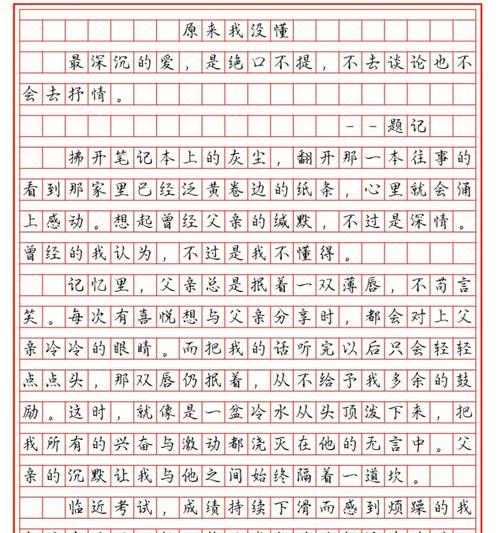 原来我没懂
最深沉的爱，是绝口不提，不去谈论也不
会去抒情。
--题记
拂开笔记本上的灰尘，翻开那一本往事的
看到那家里已经泛黄卷边的纸条，心里就会涌
上感动。想起曾经父亲的缄默，不过是深情。
曾经的我认为，不过是我不懂得。
记忆里，父亲总是抿着一双薄唇，不苟言
笑。每次有喜悦想与父亲分享时，都会对上父
亲冷冷的眼睛。而把我的话听完以后只会轻轻
点点头，那双唇仍抿着，从不给予我多余的鼓
励。这时，就像是一盆冷水从头顶泼下来，把
我所有的兴奋与激动都浇灭在他的无言中。父
亲的沉默让我与他之间始终隔着一道坎。
临近考试，成绩持续下滑而感到烦躁的我